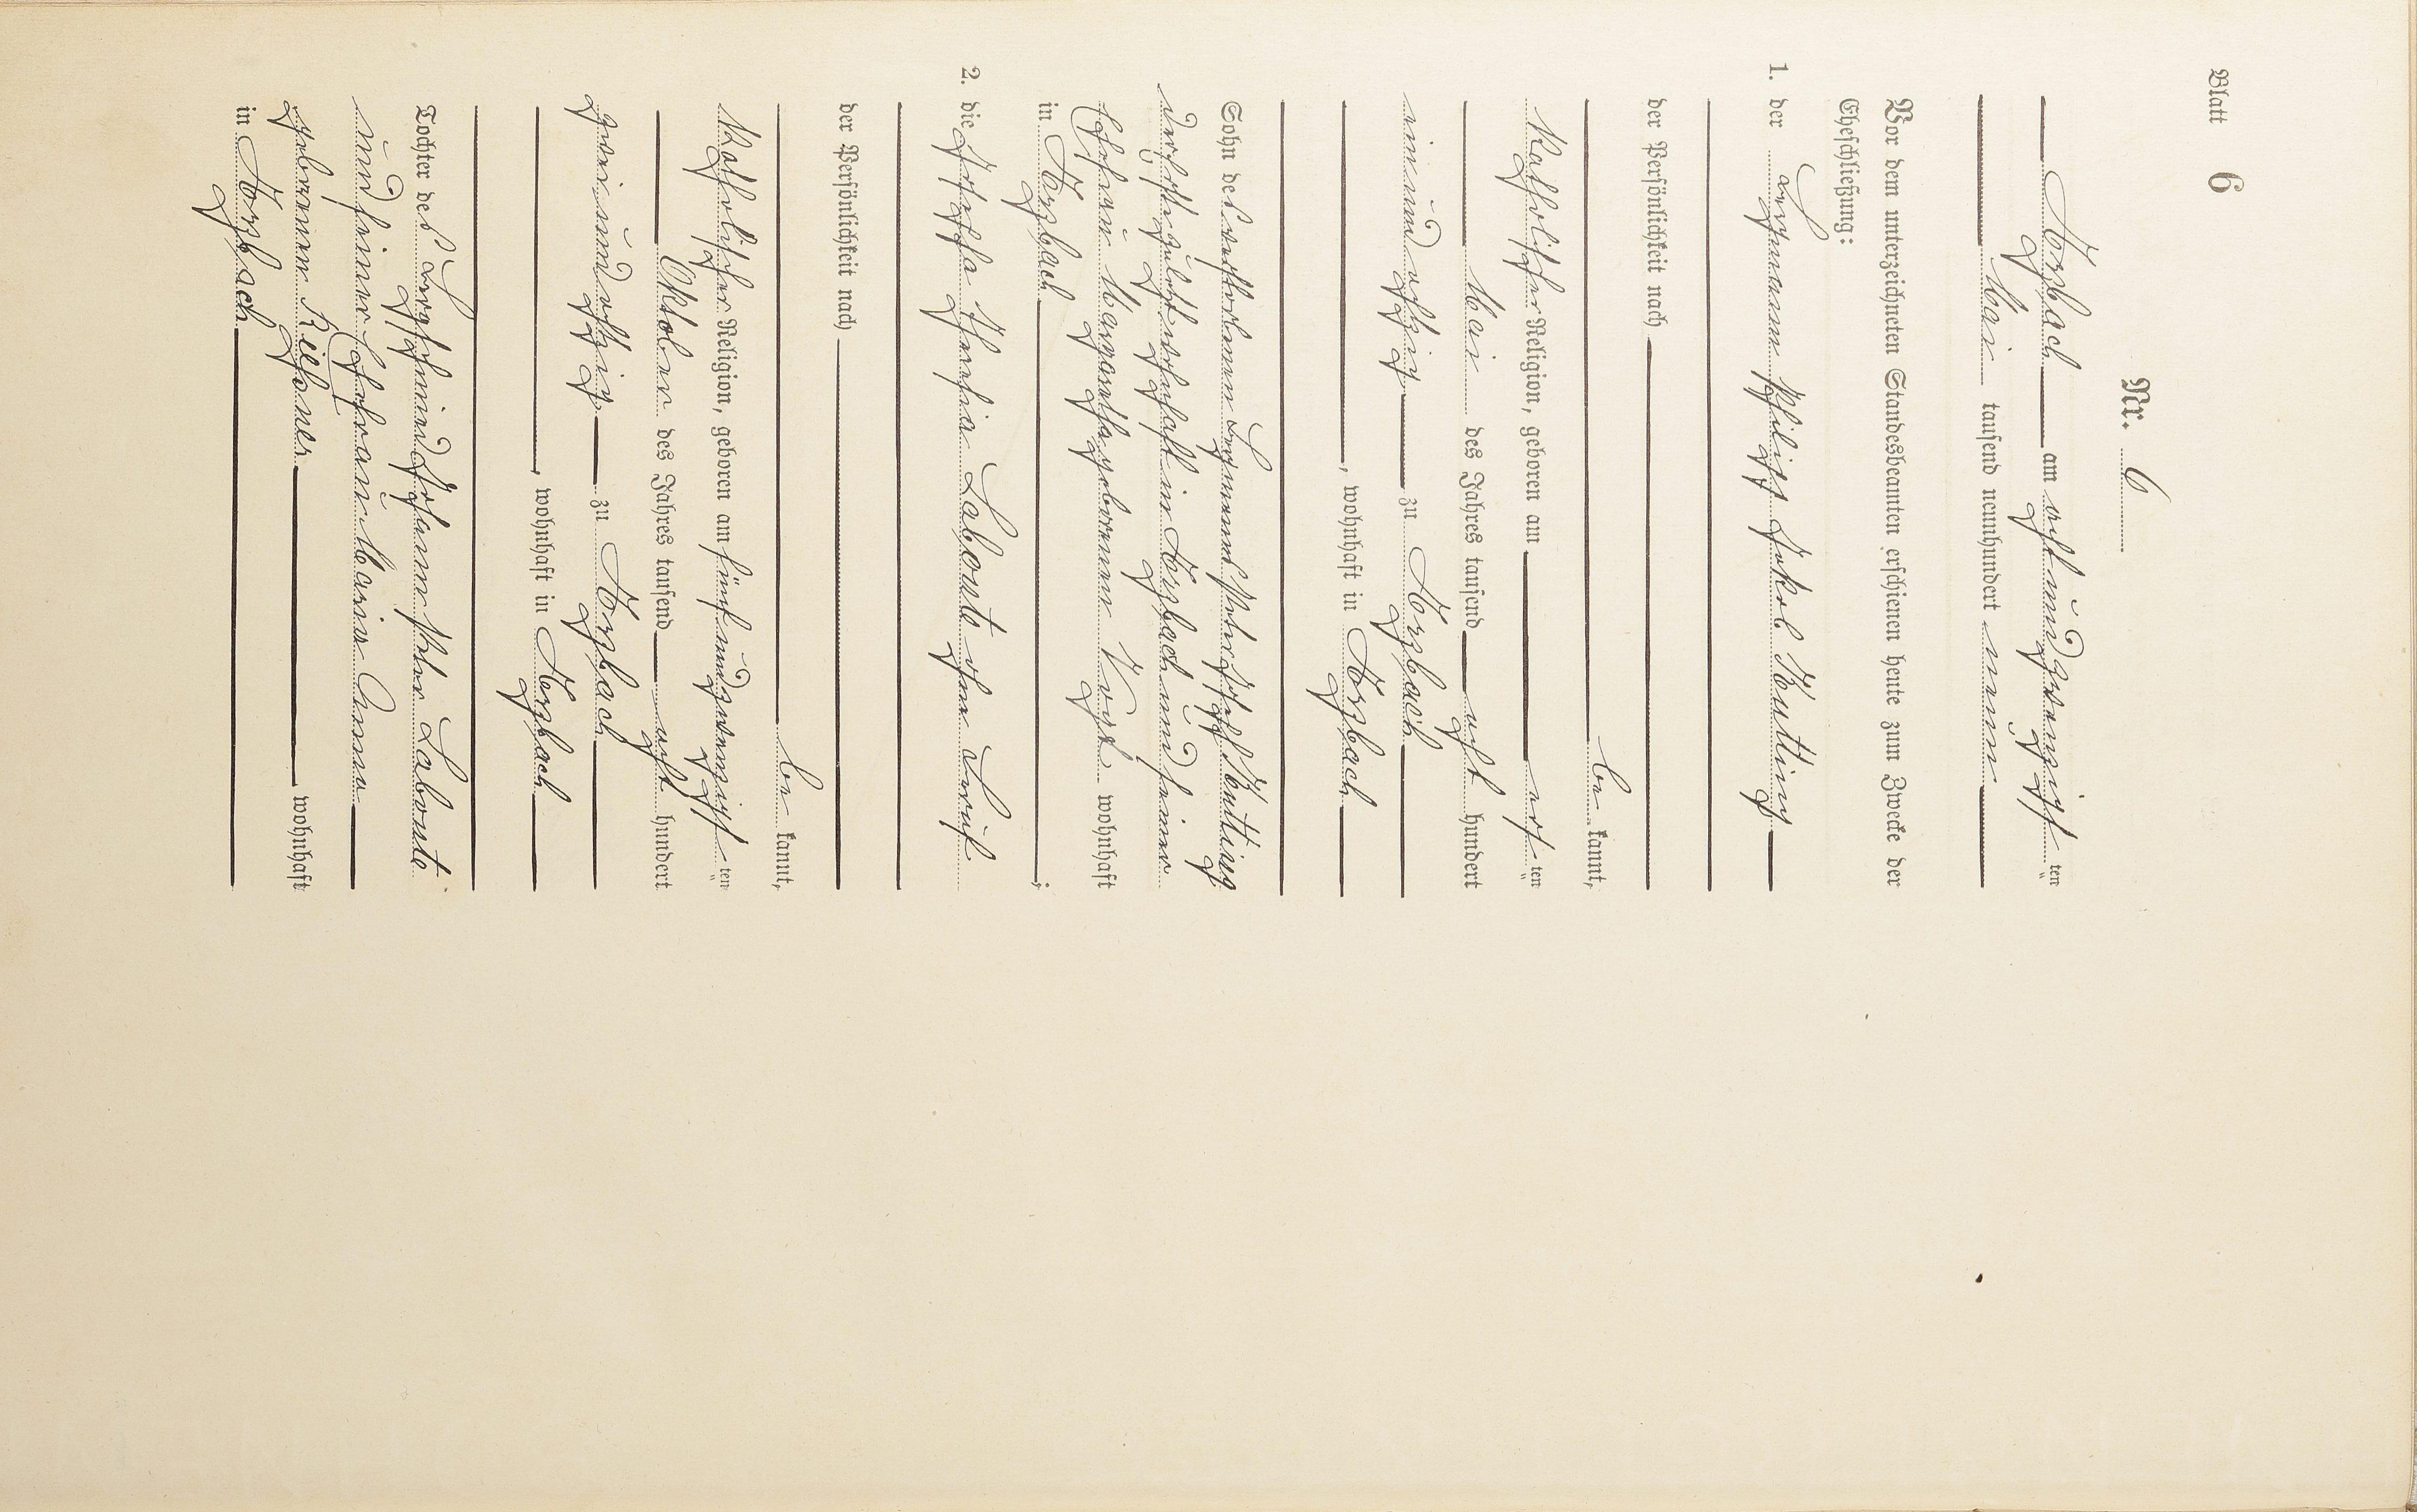 Blatt 6
Nr. 6
Hörzbach am achtundzwanzigsten
Mai tausend neunhundert neun
Vor dem unterzeichneten Standesbeamten erschienen heute zum Zwecke der
Eheschließung:
1. der Bergmann Philipp Jakob Kutting
der Persönlichkeit nach
be kannt,
Katholischer Religion, geboren am acht ten
Mai des Jahres tausend acht hundert
einundachtzig zu
, wohnhaft in
Sohn des verstorbenen Bergmanns Peter Joseph Kutting
zuletzt wohnhaft in und seiner
Ehefrau Margaretha geborenen Vogt wohnhaft
in ;
2. die Josepha Theresia Labonte ohne Beruf
der Persönlichkeit nach
be kannt,
Katholischer Religion, geboren am fünfundzwanzigsten
Oktober des Jahres tausend acht hundert
zweiundachtzig zu
, wohnhaft in
Tochter des Johann Peter Labonte
und seiner Ehefrau Maria Anna
geborenen wohnhaft
in